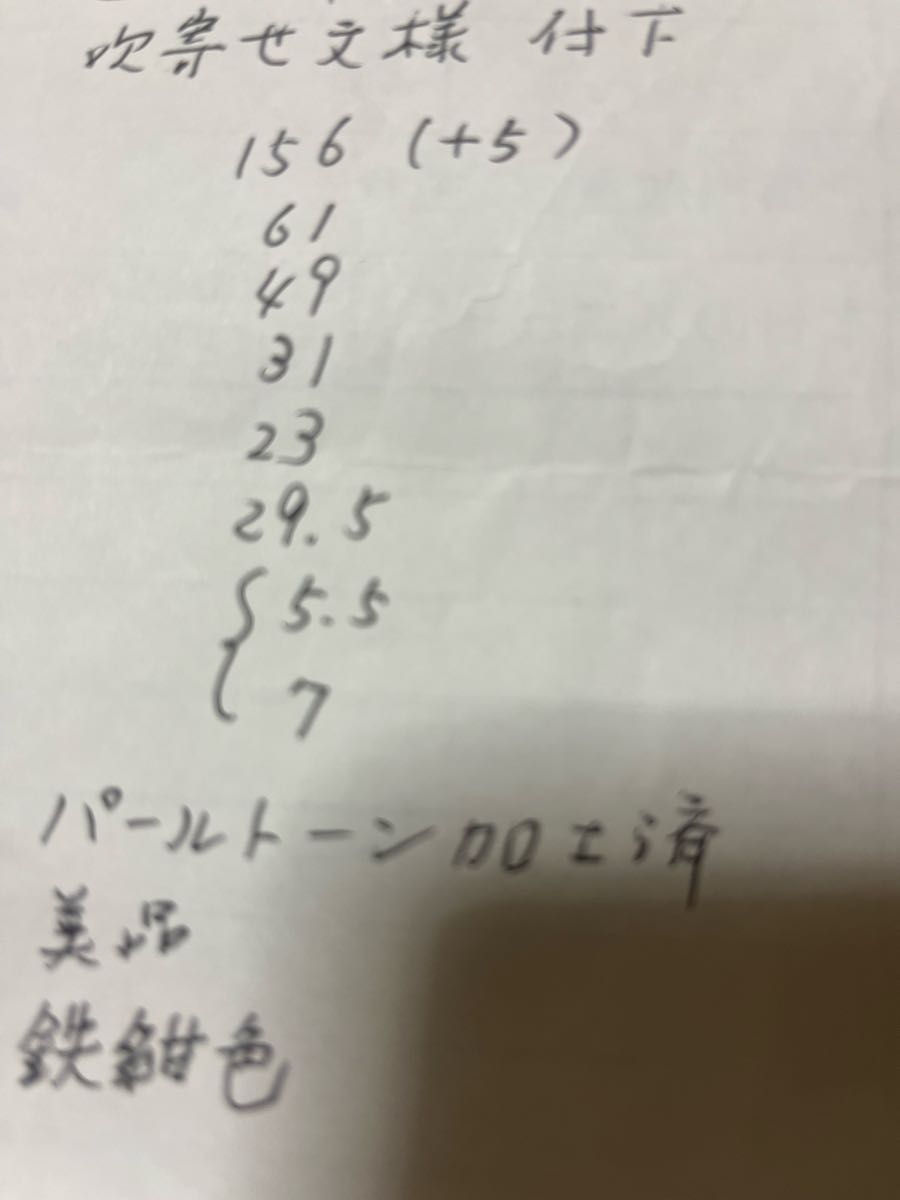 吹寄せ文様 付下
156 (+5)
61
49
31
23
29.5
5.5
7
パールトーン加工済
美品
鉄紺色